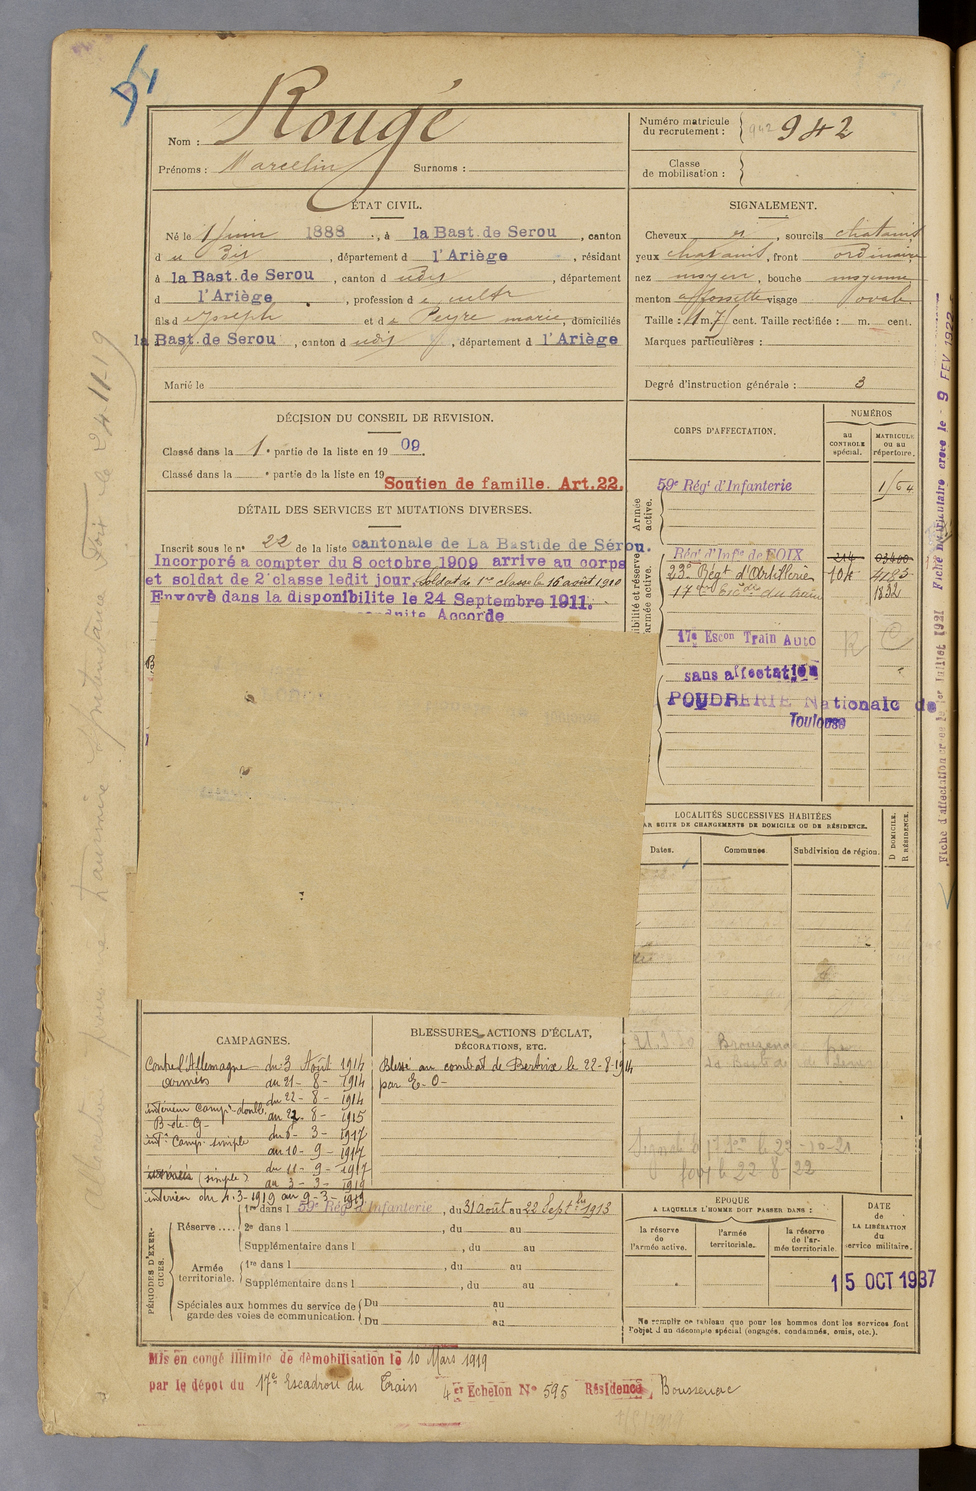 Rougé
Nom :
Prénoms : Marcelin Surnoms :
Numéro matricule du recrutement : 942 942
Classe de mobilisation :
ÉTAT CIVIL.
Né le 1 Juin 1888, à la Bast. de Serou, canton
du dit, département d l'Ariège, résidant
à la Bast. de Serou, canton d udit, département
d l'Ariège, profession de cultr
fils d Joseph et de Peyre marie, domiciliés
la Bast. de Serou, canton d udit, département d l'Ariège
Marié le
SIGNALEMENT.
Cheveux et, sourcils chatains
yeux chatains, front ordinaire
nez moyen, bouche moyenne
menton à fossette visage ovale
Taille : 1 m. 71 cent. Taille rectifiée : m. cent.
Marques particulières :
Degré d'instruction générale : 3
DÉCISION DU CONSEIL DE REVISION.
Classé dans la 1e partie de la liste en 1909.
Classé dans la e partie de la liste en 19
Soutien de famille. Art. 22.
DÉTAIL DES SERVICES ET MUTATIONS DIVERSES.
Inscrit sous le n° 22 de la liste cantonale de La Bastide de Sérou.
Incorporé a compter du 8 octobre 1909 arrive au corps
et soldat de 2e classe ledit jour, soldat de 1re classe le 16 août 1910
Envoyé dans la disponibilite le 24 Septembre 1911.
conduite Accorde
CORPS D'AFFECTATION.
NUMÉROS
au CONTROLE spécial.
MATRICULE ou au répertoire.
Armée active.
59e Régt d'Infanterie
Régt d'Infie de FOIX 214 03400
23e Régt d'Artillerie 104 4183
1832
17e Escon Train Auto R
sans affectation
POUDRERIE Nationale de
Toulouse
LOCALITÉS SUCCESSIVES HABITÉES
PAR SUITE DE CHANGEMENTS DE DOMICILE OU DE RÉSIDENCE.
Dates. Communes. Subdivision de région.
D DOMICILE.
R RÉSIDENCE.
CAMPAGNES.
Contre l'Allemagne du 3 Août 1914
armées au 21 - 8 - 1914
du 22 - 8 - 1914
intérieur Camp. double au 22 - 8 - 1915
B. de G.
intr Camp. simple du 6 - 3 - 1917
au 10 - 9 - 1917
(simple) du 11 - 9 - 1917
au 3 - 3 - 1919
intérieur du 4-3-1919 au 9-3-1919
BLESSURES, ACTIONS D'ÉCLAT,
DÉCORATIONS, ETC.
Blessé au combat de Bertrix le 22-8-1914
par E. O-
PÉRIODES D'EXERCICES.
Réserve....
1re dans l 59e Régt d'Infanterie, du 31 août au 22 Septbre 1913
2e dans l , du au
Supplémentaire dans l , du au
Armée territoriale.
1re dans l , du au
Supplémentaire dans l , du au
Spéciales aux hommes du service de garde des voies de communication.
Du au
Du au
EPOQUE
A LAQUELLE L'HOMME DOIT PASSER DANS :
la réserve de l'armée active.
l'armée territoriale.
la réserve de l'armée territoriale.
DATE de LA LIBÉRATION du service militaire.
15 OCT 1937
Ne remplir ce tableau que pour les hommes dont les services font
l'objet d'un décompte spécial (engagés, condamnés, omis, etc.).
Mis en congé illimité de démobilisation le 10 Mars 1919
par le dépot du 17e Escadron du Train 4e Echelon N° 595 Résidence, Boussenac
Fiche d'affectation créée le 1er Juillet 1921
Fiche matriculaire créée le 9 FEV 1922